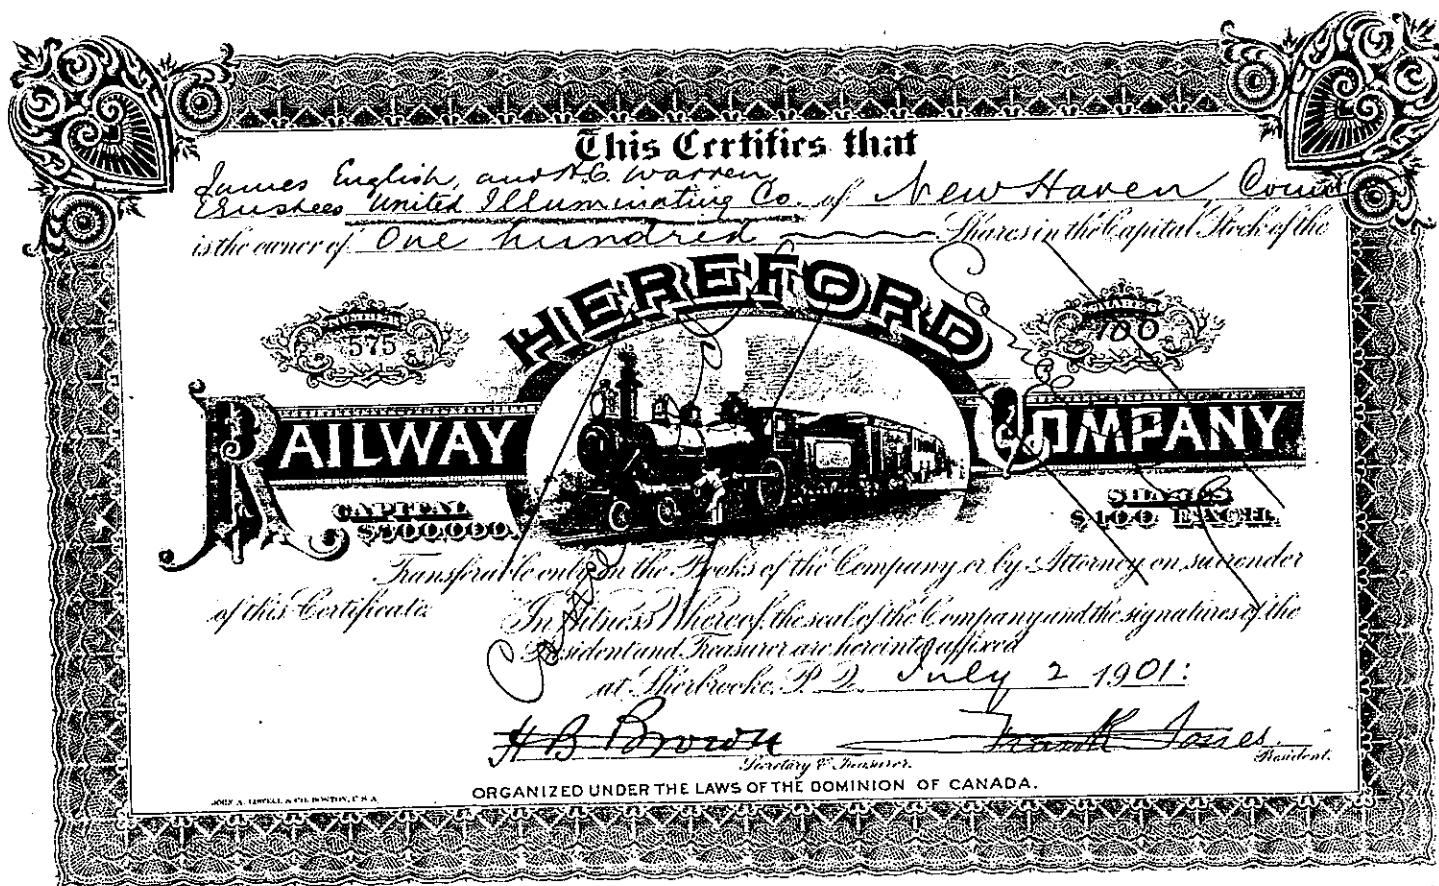 This Certifies that
James English, and H.C. Warren,
Trustees United Illuminating Co. of New Haven, Conn
is the owner of One hundred Shares in the Capital Stock of the
HEREFORD
NUMBER
575
SHARES
100
RAILWAY COMPANY
CAPITAL
$800.000.
SHARES
$100 EACH.
Transferable only on the Books of the Company or by Attorney on surrender
of this Certificate.
In Witness Whereof, the seal of the Company and the signatures of the
President and Treasurer are hereinto affixed
at Sherbrooke, P. Q. July 2 1901:
H B Brown
Frank Jones
Secretary & Treasurer.
President.
ORGANIZED UNDER THE LAWS OF THE DOMINION OF CANADA.
JOHN A. LOWELL & CO. BOSTON, U.S.A.
Cancelled
Cancelled